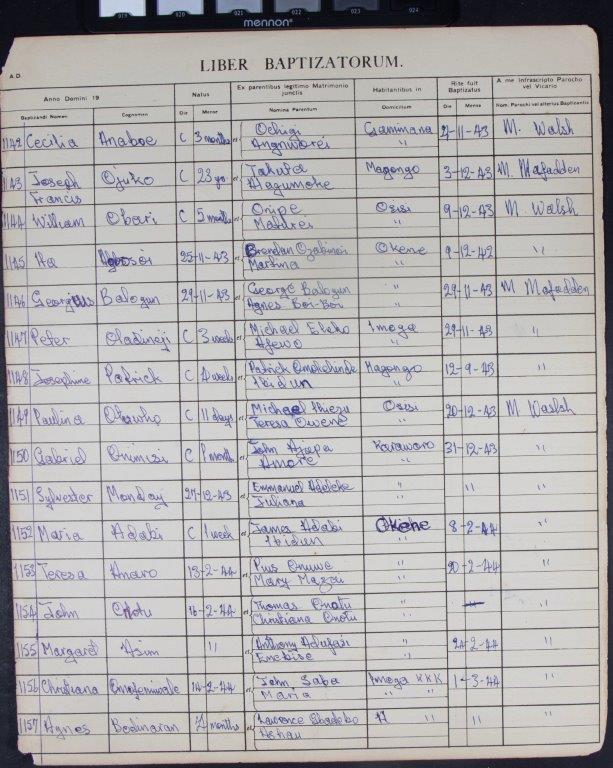 019 020 021 022 023 024
mennon
LIBER BAPTIZATORUM.
A.D.
Anno Domini 19 Natus Ex parentibus legitimo Matrimonio junctis Habitantibus in Rite fuit Baptizatus A me infrascripto Parocho vel Vicario
Baptizandi Nomen Cognomen Die Mense Nomina Parentum Domicilium Die Mense Nom. Parochi vel alterius Baptizantis
1142 Cecilia Anaboe C 3 months et Ochigi Gammana 2-11-43 M. Walsh
Angnworei "
1143 Joseph Ojuko C 23 yrs et Jakuta Magongo 3-12-43 M. Mafadden
Francis Alagumoke
1144 William Obari C 5 months et Onipe Osisi 9-12-43 M. Walsh
Maturei "
1145 Ita 25-11-43 et Brendan Ozabinoi Okene 9-12-42 "
Martina "
1146 Georgius Balogun 29-11-43 et George Balogun " 29-11-43 M Mafadden
Agnes Boi-Boi "
1147 Peter Oladineji C 3 weeks et Michael Eleko Imoga 29-11-43 "
Ajewo "
1148 Josephine Patrick C 4 weeks et Patrick Omokehinde Magongo 12-9-43 "
Ibidun "
1149 Paulina Otawho C 11 days et Michael Osisi 20-12-43 M Waslsh
Teresa Owene "
1150 Gabriel Onimisi C 1 month et John Ajapa Karaworo 31-12-43 "
Amore "
1151 Sylvester Monday 27-12-43 et Emmanuel Adeleke " " "
Juliana "
1152 Maria Adabi C 1 week et James Adabi Okene 8-2-44 "
Ibidun "
1153 Teresa Anaro 13-2-44 et Pius Onuwe " 20-2-44 "
Mary Mazou "
1154 John Onotu 16-2-44 et Thomas Onotu " "
Christiana Onotu "
1155 Margaret Asim " et Anthony " 24-2-44 "
Enebise "
1156 Christiana 14-2-44 et John Saba Imoga KKK 1-3-44 "
Maria " "
1157 Agnes Bedinaran 7 months et Lawrence Obadebo " " " "
Ashau